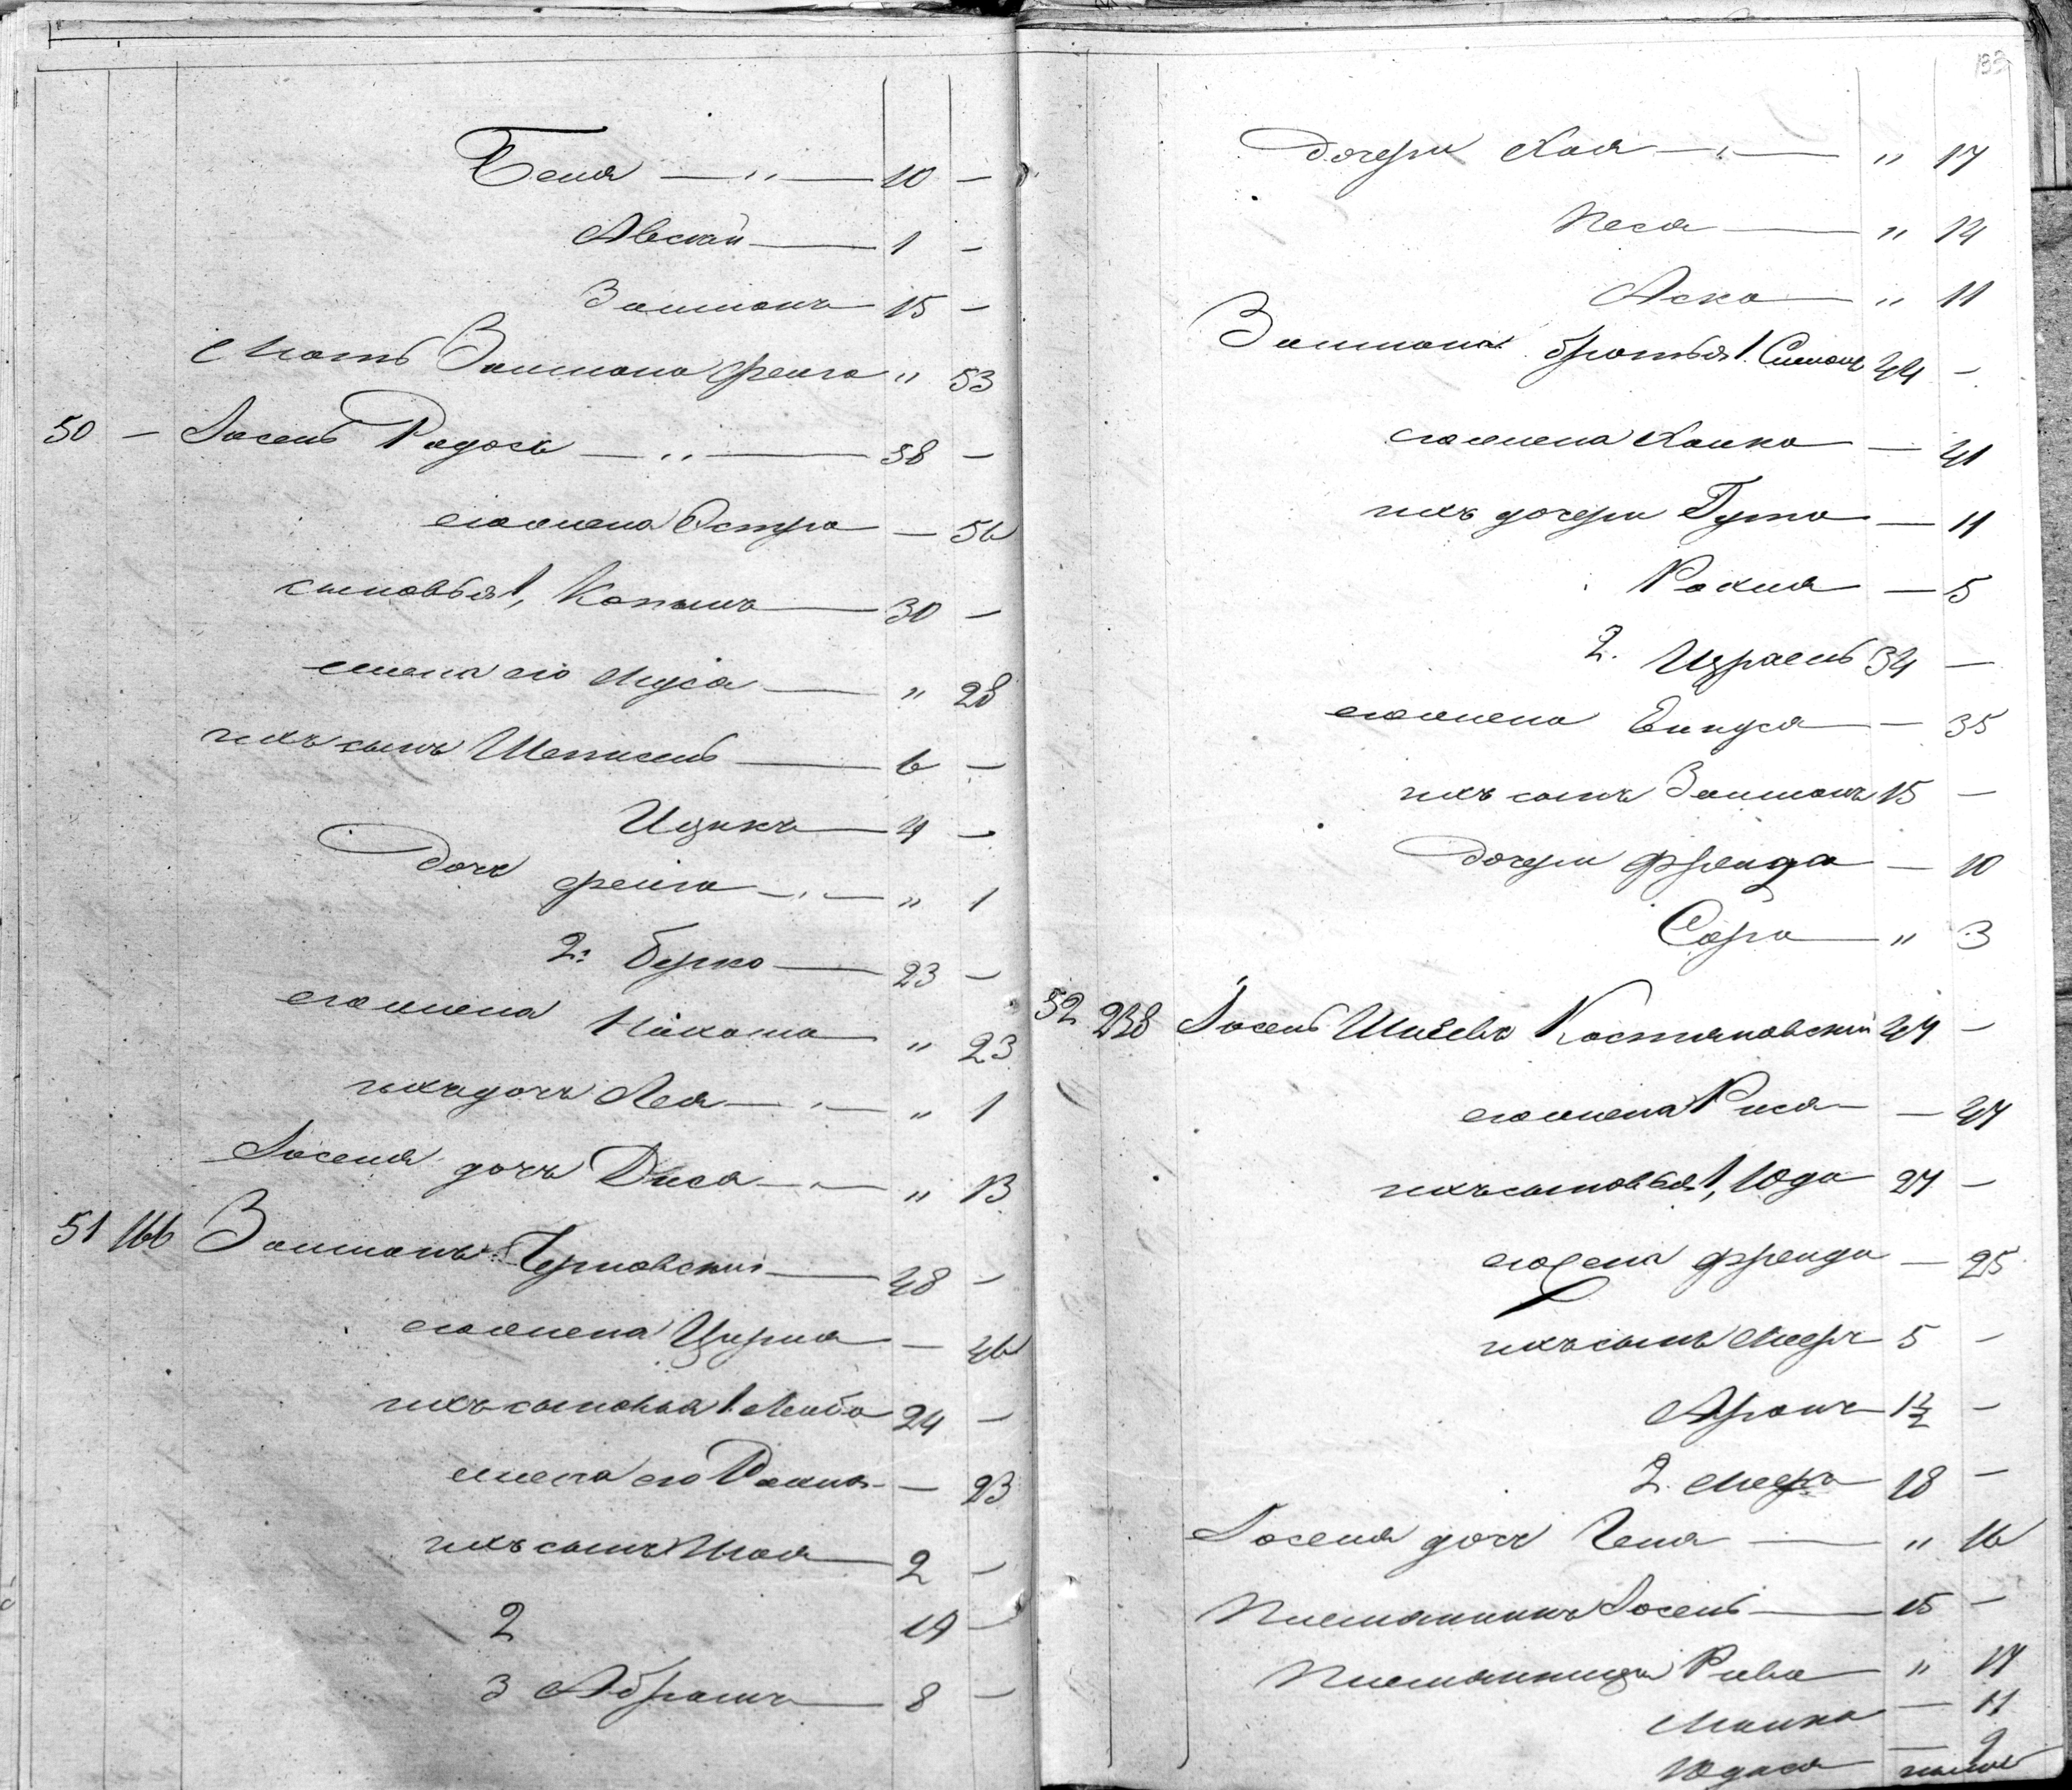 Беня — " — 10 —
Авсей — 1 —
Залманъ 15 —
Мать Залмана Фейга " 53
50 — Іосель Радосъ — " — 38 —
его жена Эстра — 56
сыновья 1, Копель — 30 —
жена его Муся — " 28
ихъ сынъ Шепсель — 6 —
Ицикъ — 4 —
дочь Фейга — " — " 1
2. Берко — 23 —
его жена Нахама " 23
ихъ дочь Лея — " — " 1
Іоселя дочь Диса — " — " 13
51 166 Залманъ Черновскій — 48 —
его жена Цирля — 46
ихъ сыновья 1. Лейба 24 —
жена его Рахиль — 23
ихъ сынъ Шая — 2 —
2 19 —
3 Абрамъ — 8 —
133
дочери Хая — " — " 17
Песя — " 14
Аска — " 11
Залмана братья 1. Симонъ 44 —
его жена Ханка — 41
ихъ дочери Гута — 11
Рахиля — 5
2. Израель 34 —
его жена Енпуся — 35
ихъ сынъ Залманъ 15 —
дочери Фрейда — 10
Сора — " 3
52 238 Іосель Костяновскій 47 —
его жена Рися — 47
ихъ сыновья 1, Юда 27 —
его жена Фрейда — 25
ихъ сынъ Мееръ 5 —
Аронъ 1½ —
2. 18 —
Іоселя дочь Геня — " 16
Племянникъ Іосель — 15 —
Племянница Рива — " 17
Малка — 11
Юдася — 9